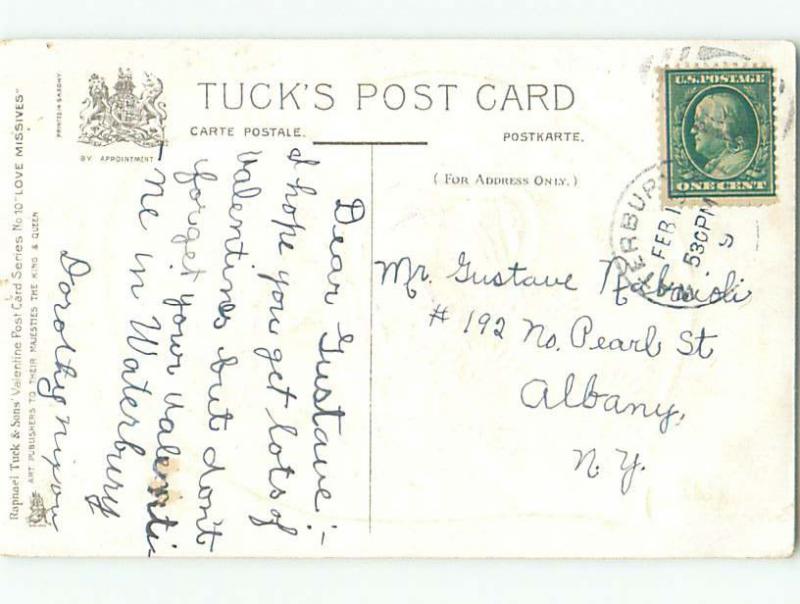 TUCK'S POST CARD
CARTE POSTALE.
POSTKARTE.
BY APPOINTMENT
PRINTED IN SAXONY
(FOR ADDRESS ONLY.)
Raphael Tuck & Sons' Valentine Post Card Series No 10 "LOVE MISSIVES"
ART PUBLISHERS TO THEIR MAJESTIES THE KING & QUEEN
U.S. POSTAGE
ONE CENT
FEB 1
530PM
9
Dear Gustave:-
I hope you get lots of
Valentines but don't
forget your Valenti-
ne in Waterbury
Dorothy Nixon
Mr. Gustave
# 192 No. Pearl St
Albany,
N.Y.